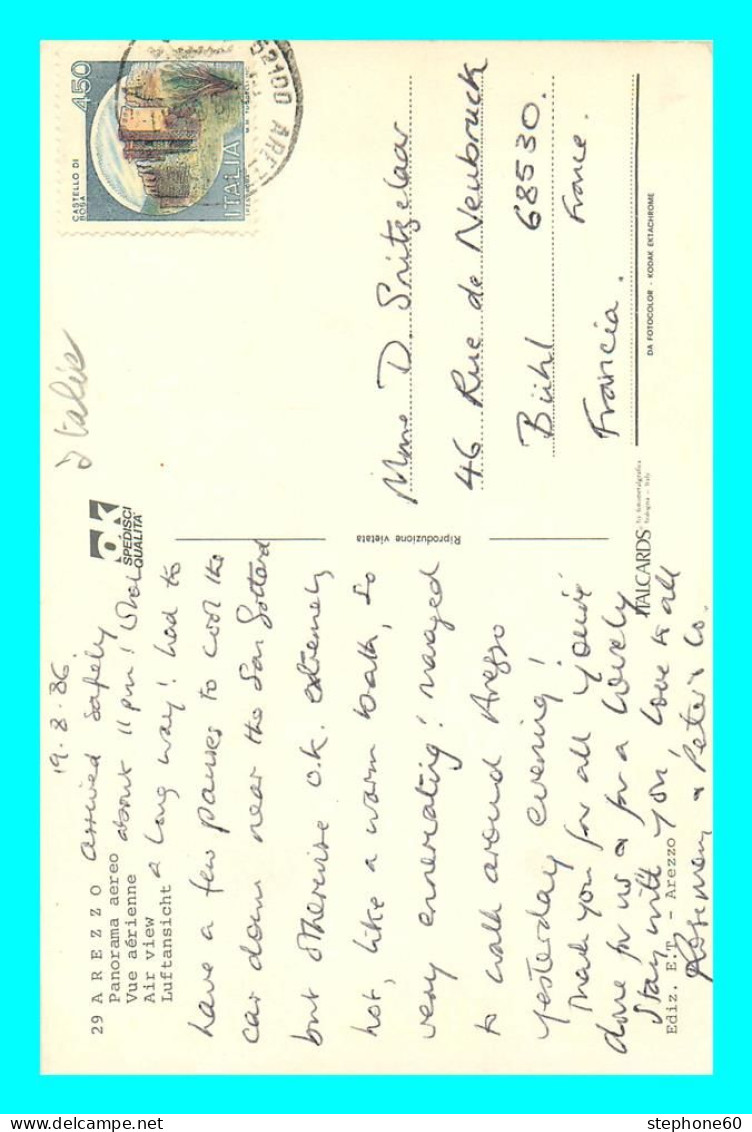 29 AREZZO
Panorama aereo
Vue aérienne
Air view
Luftansicht
19.8.86
Arrived safely
about 11 pm! What
a long way! Had to
have a few pauses to cool the
car down near the San Gottard
but otherwise o.k. extremely
hot, like a warm bath, so
very ennervating! managed
to walk around Arezzo
yesterday evening!
Thank you for all you've
done for us & for a lovely
stay with you, love to all
Rosemary & Peter & Co.
Ediz. E.T. - Arezzo
OK
SPEDISCI
QUALITÀ
Riproduzione vietata
ITALCARDS
bologna - italy
Italie
CASTELLO DI
BOSA
450
ITALIA
52100 AREZ
Mme D.
46 Rue de Neubruck
Bühl 68530.
Francia. France.
DA FOTOCOLOR - KODAK EKTACHROME
stephone60